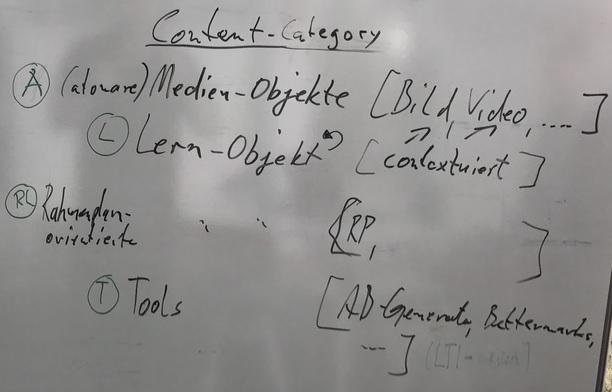 Content-Category
A (atomare) Medien-Objekte [Bild, Video, ....]
L Lern-Objekt [contextuiert]
RL Rahmenplan- " " [RP, ]
orientierte
T Tools [AB-Generator, Bettermarks,
---] (LTI-)